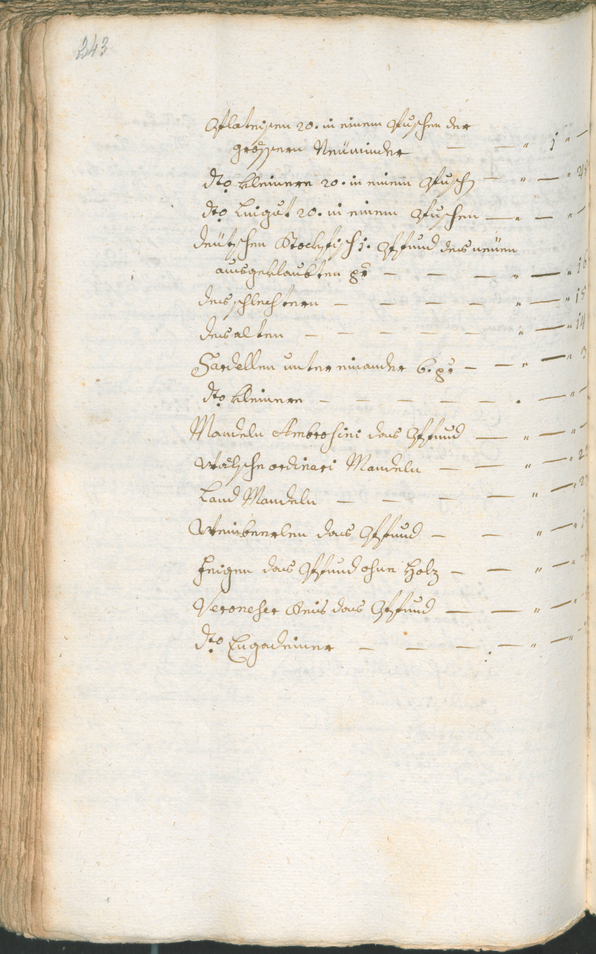 243
Plateisen 20. in einem Puschen der
grössern Neuninder — — " 1 " —
dto kleinere 20. in einem Pusch — " — "
dto 20. in einem Puschen — " — "
deütschen Stockhfisch 1. Pfund des neüen
ausgeklaubten — — — — " — "
des schlechtern — — — — " — " 15
des alten — — — — — " — " 14
Sardellen untereinander 6. — " — "
dto kleinere — — — — — " — "
Mandeln Ambrosini das Pfund — " — "
Wälsche ordinari Mandeln — — " — "
Land Mandeln — — — — " — "
Weinbeerlen das Pfund — — " — "
Feigen das Pfund ohne Holz — — " — "
Veroneser Reis das Pfund — — " — "
dto Engadeiner — — — — " — "